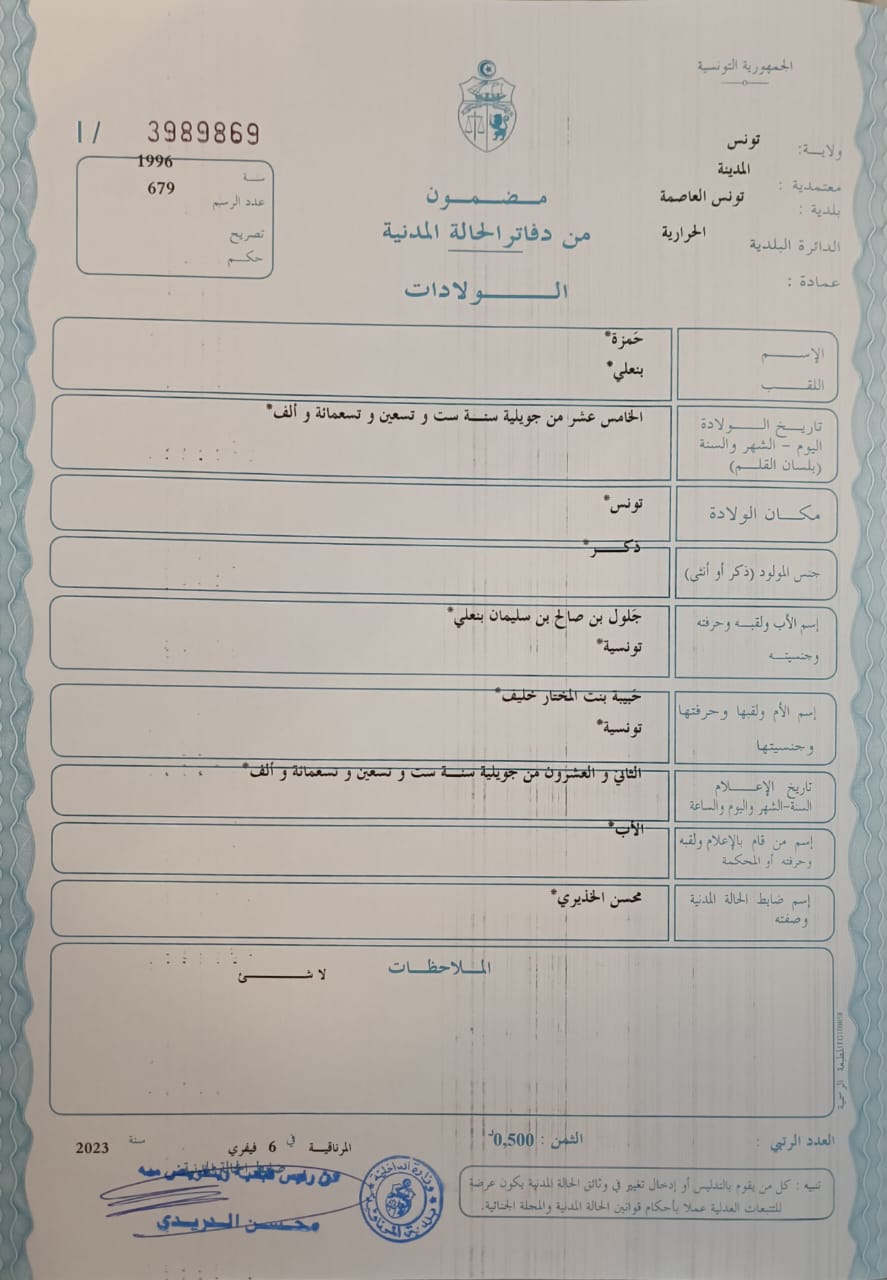 الجمهورية التونسية
I / 3989869
ولايـة: تونس
معتمدية : المدينة
بلدية : تونس العاصمة
الدائرة البلدية الحرارية
عمادة :
سنة 1996
عدد الرسم 679
تصريح
حكم
مضمون
من دفاتر الحالة المدنية
الولادات
الإسم حَمزة*
اللقب بنعلي*
تاريخ الولادة الخامس عشر من جويلية سنة ست و تسعين و تسعمائة و ألف*
اليوم - الشهر والسنة
(بلسان القلم)
مكان الولادة تونس*
جنس المولود (ذكر أو أنثى) ذكر*
إسم الأب ولقبه وحرفته جَلول بن صالح بن سليمان بنعلي*
وجنسيته تونسية*
إسم الأم ولقبها وحرفتها حَبيبة بنت المختار خليف*
وجنسيتها تونسية*
تاريخ الإعلام الثاني و العشرون من جويلية سنة ست و تسعين و تسعمائة و ألف*
السنة-الشهر واليوم والساعة
إسم من قام بالإعلام ولقبه الأب*
وحرفته أو المحكمة
إسم ضابط الحالة المدنية محسن الخذيري*
وصفته
الملاحظات
لا شئ
المطبعة الرسمية
العدد الرتبي : الثمن : 0,500د
المرناقية في 6 فيفري سنة 2023
ضابط الحالة المدنية
عن رئيس
محسن الدريدي
وزارة الداخلية
بلدية المرناقية
تنبيه : كل من يقوم بالتدليس أو إدخال تغيير في وثائق الحالة المدنية يكون عرضة
للتتبعات العدلية عملا بأحكام قوانين الحالة المدنية والمجلة الجنائية.